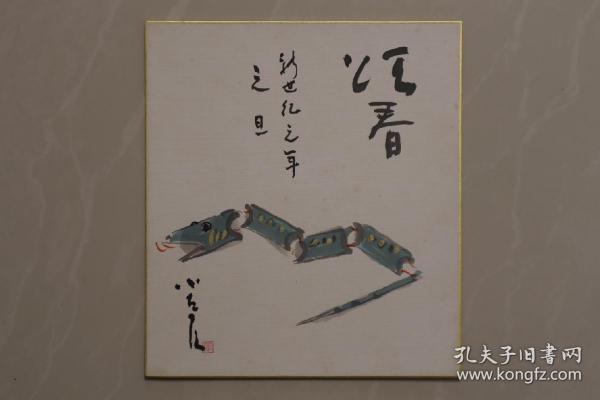 頌春
新世紀元年
元旦
孔夫子旧書网
www.kongfz.com